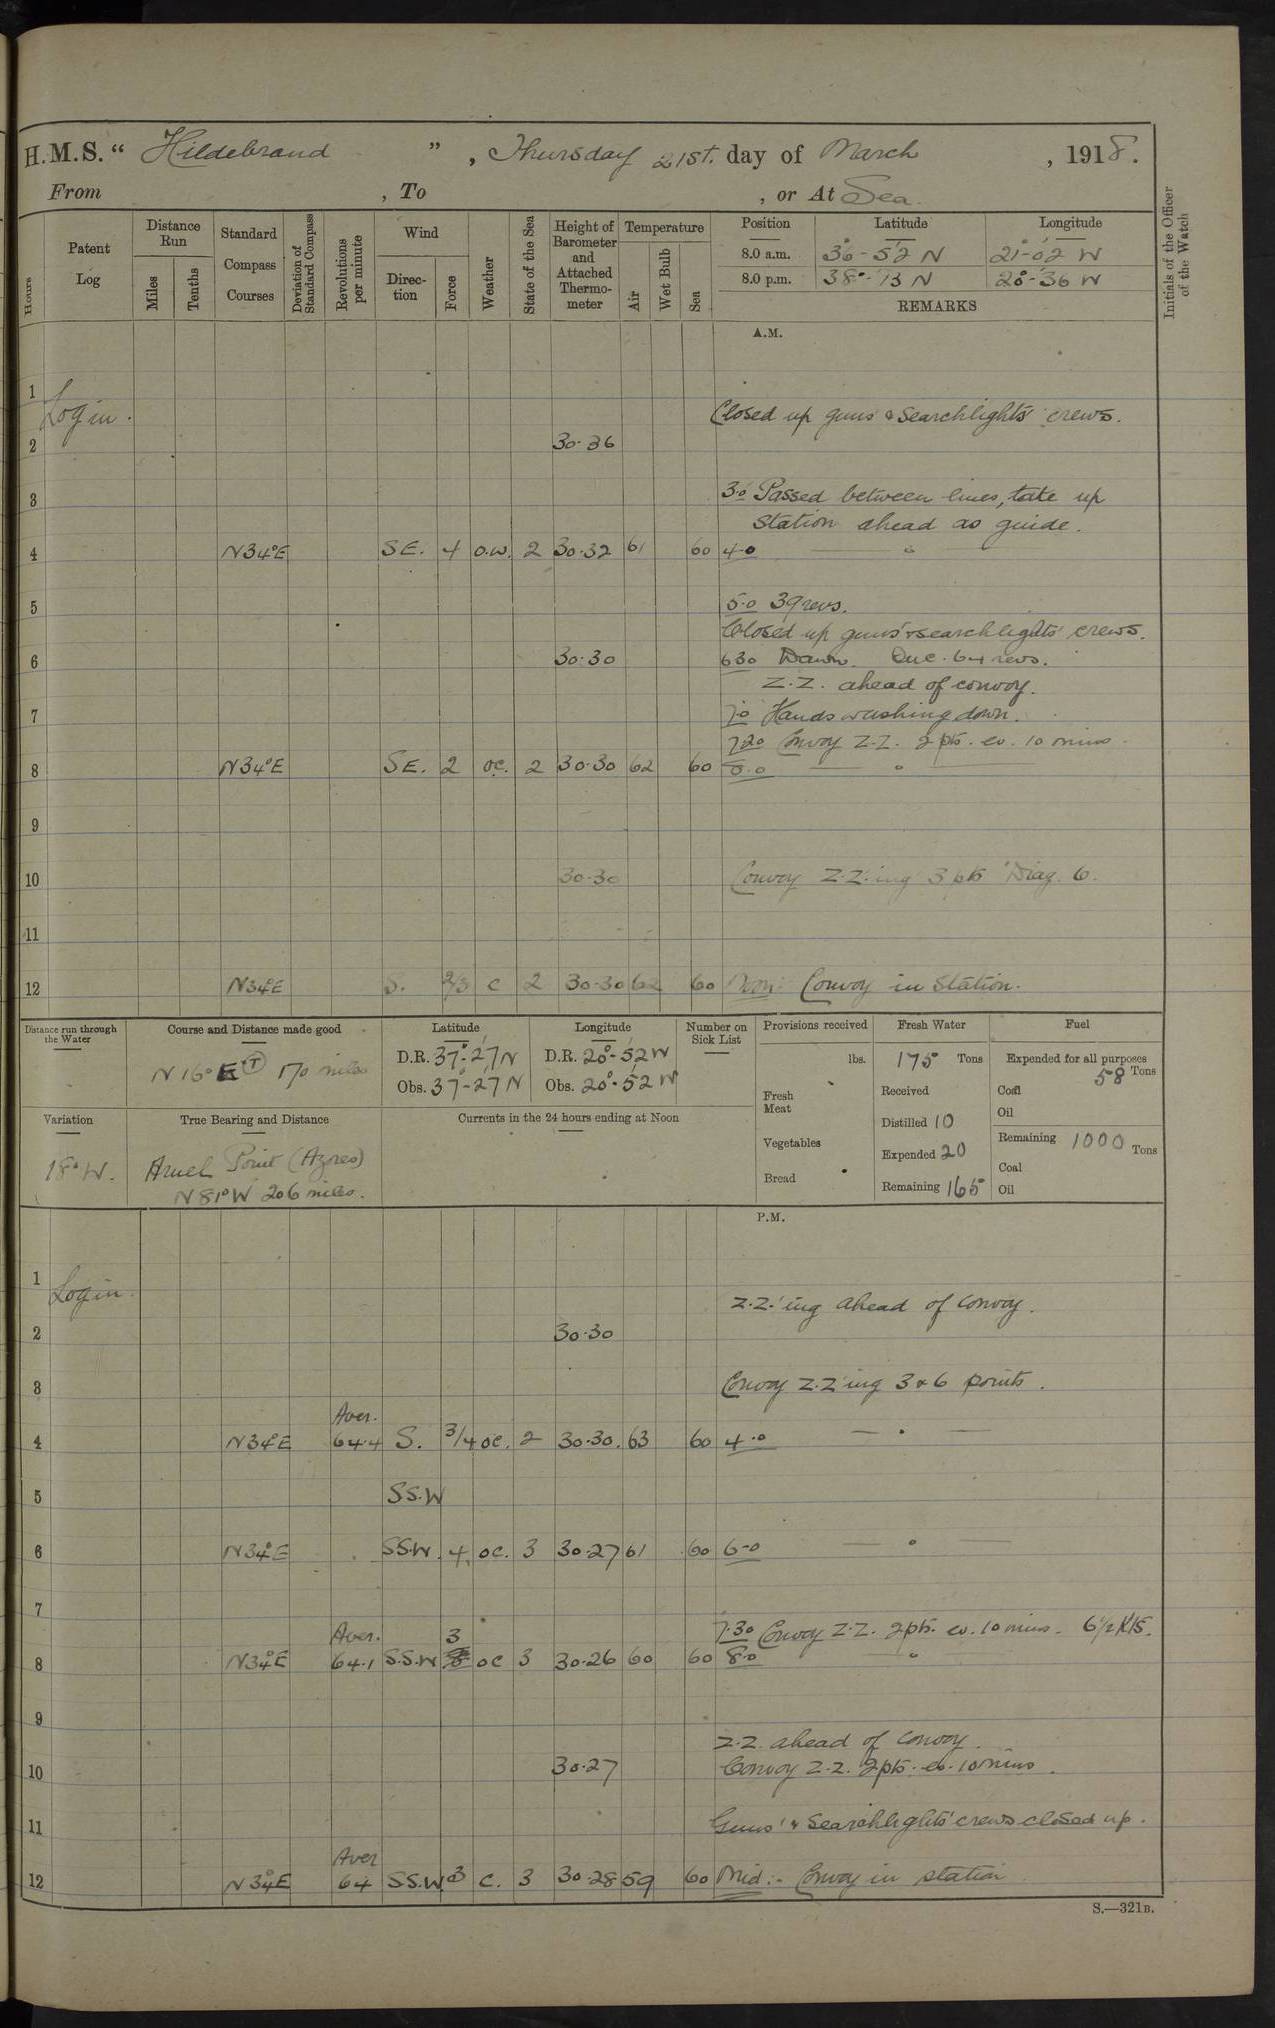 H.M.S. “ Hildebrand ” , Thursday 21st. day of March , 1918.
From , To , or At Sea.
Hours
Patent Log
Distance Run
Miles
Tenths
Standard Compass Courses
Deviation of Standard Compass
Revolutions per minute
Wind
Direction
Force
Weather
State of the Sea
Height of Barometer and Attached Thermometer
Temperature
Air
Wet Bulb
Sea
Position Latitude Longitude
8.0 a.m. 36°-52 N 21°-02' W
8.0 p.m. 38°-13 N 20°-36' W
REMARKS
Initials of the Officer of the Watch
A.M.
1
Log in. Closed up guns & searchlights' crews.
2 30.36
3 3.0 Passed between lines, take up
station ahead as guide.
4 N34°E SE. 4 o.w. 2 30.32 61 60 4.0 "
5 5.0 39 revs.
Closed up guns' & searchlights' crews.
6 30.30 630 Dawn. Inc. 64 revs.
Z.Z. ahead of convoy.
7 7.0 Hands washing down.
720 Convoy Z.Z. 2 pts. ev. 10 mins.
8 N34°E SE. 2 oc. 2 30.30 62 60 8.0 — " —
9
10 30.30 Convoy Z.Z.'ing 3 pts Diag. 6.
11
12 N34°E S. 2/3 c 2 30.30 62 60 Noon: Convoy in Station.
Distance run through the Water
Course and Distance made good
N 16° E (T) 170 miles
Latitude
D.R. 37°-27' N
Obs. 37°-27' N
Longitude
D.R. 20°-52' W
Obs. 20°-52' W
Number on Sick List
Provisions received
lbs.
Fresh Meat
Vegetables
Bread
Fresh Water
175 Tons
Received
Distilled 10
Expended 20
Remaining 165
Fuel
Expended for all purposes
58 Tons
Coal
Oil
Remaining 1000 Tons
Coal
Oil
Variation
18° W.
True Bearing and Distance
Arnel Point (Azores)
N 81° W 206 miles.
Currents in the 24 hours ending at Noon
P.M.
1
Log in. Z.Z.'ing ahead of Convoy.
2 30.30
3 Convoy Z.Z'ing 3 & 6 points.
Aver.
4 N34°E 64.4 S. 3/4 oc. 2 30.30. 63 60 4.0 — " —
5 SS.W
6 N34°E SS.W. 4 oc. 3 30.27 61 60 6.0 — " —
7 7.30 Convoy Z.Z. 2 pts. ev. 10 mins. 6 1/2 Kts.
Aver. 3
8 N34°E 64.1 S.S.W oc 3 30.26 60 60 8.0 "
9
Z.Z. ahead of Convoy.
10 30.27 Convoy Z.Z. 2 pts. ev. 10 mins.
11 Guns' & Searchlights' crews closed up.
Aver
12 N34°E 64 SS.W 3 c. 3 30.28 59 60 Mid:- Convoy in station
S.—321B.